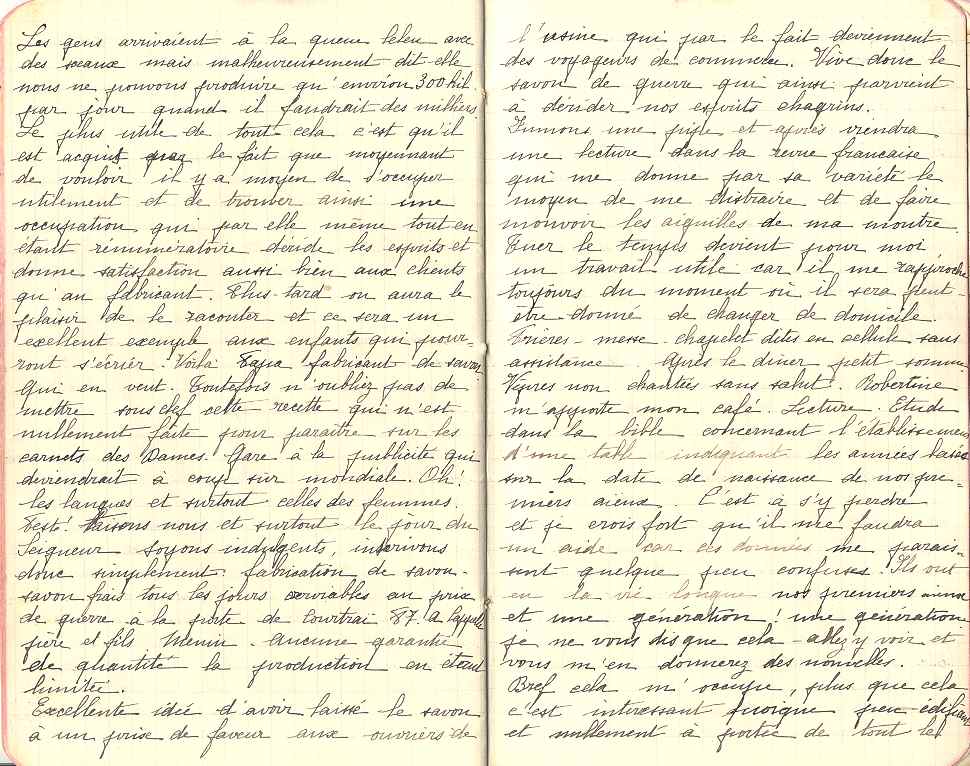 Les gens arrivaient à la queue leleu avec
des sceaux mais malheureusement dit-elle
nous ne pouvons produire qu'environ 300 kil
par jour quand il faudrait des milliers.
Le plus utile de tout cela c'est qu'il
est acquis par le fait que moyennant
de vouloir il y a moyen de s'occuper
utilement et de trouver ainsi une
occupation qui par elle même tout en
étant rémunératoire déride les esprits et
donne satisfaction aussi bien aux clients
qu'au fabricant. Plus-tard on aura le
plaisir de le raconter et ce sera un
excellent exemple aux enfants qui pour-
ront s'écrier. Voilà Papa fabricant de savon.
Qui en veut. Toutefois n'oubliez pas de
mettre sous clef cette recette qui n'est
nullement faite pour paraître sur les
carnets des Dames. Gare à la publicité qui
deviendrait à coup sûr mondiale. Oh!
les langues et surtout celles des femmes.
Peste! Taisons nous et surtout le jour du
Seigneur soyons indulgents, inscrivons
donc simplement. fabrication de savon.
savon frais tous les jours servables au prix
de guerre à la porte de Courtrai 87. A Lappe
père et fils Menin. Aucune garantie
de quantité la production en étant
limitée.
Excellente idée d'avoir laissé le savon
à un prix de faveur aux ouvriers de
l'usine qui par le fait deviennent
des voyageurs de commerce. Vive donc le
savon de guerre qui ainsi parvient
à dérider nos esprits chagrins.
Fumons une pipe et après viendra
une lecture dans la revue française
qui me donne par sa variété le
moyen de me distraire et de faire
mouvoir les aiguilles de ma montre.
Tuer le temps devient pour moi
un travail utile car il me rapproche
toujours du moment où il sera peut-
etre donné de changer de domicile.
Prières - messe - chapelet dites en cellule sans
assistance. Après le diner petit somme
Vêpres non chantées sans salut. Robertine
m'apporte mon café. Lecture. Etude
dans la bible concernant l'établissement
d'une table indiquant les années basées
sur la date de naissance de nos pre-
miers aieux. C'est à s'y perdre
et je crois fort qu'il me faudra
un aide car ces données me parais-
sent quelque peu confuses. Ils ont
eu la vie longue nos premiers
et une génération! une génération
je ne vous dis que cela - allez y voir et
vous m'en donnerez des nouvelles.
Bref cela m'occupe, plus que cela
c'est intéressant quoique peu édifiant
et nullement à portée de tout le